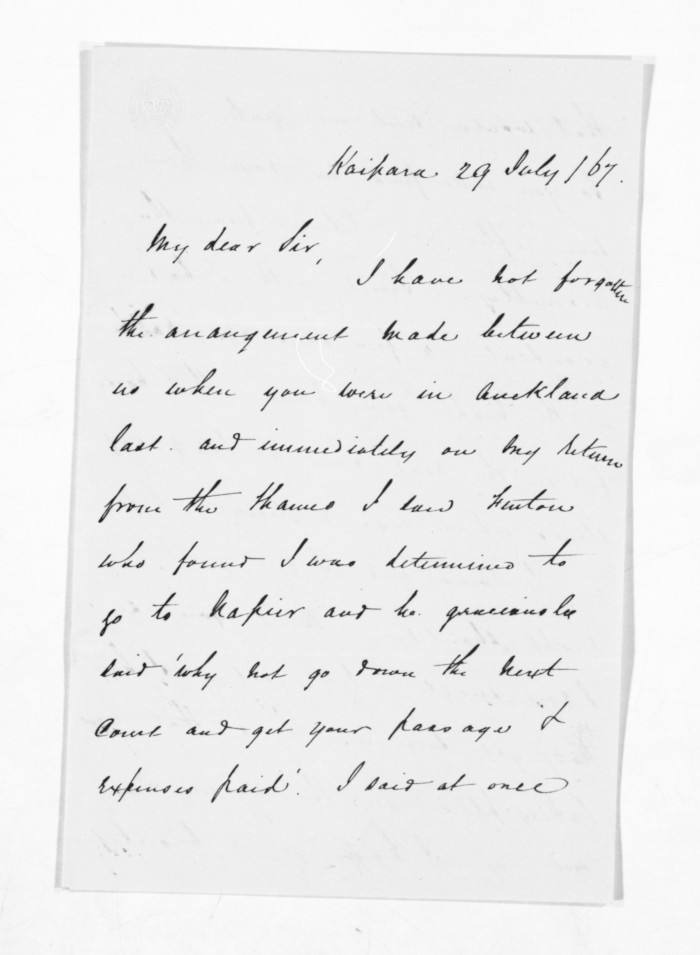 Kaipara 29 July /67.
My dear Sir,
I have not forgotten
the arrangement made between
us when you were in Auckland
last. and immediately on my return
from the Thames I saw Fenton
who found I was determined to
go to Napier and he graciously
said 'why not go down the next
Court and get your passage &
expenses paid'. I said at once